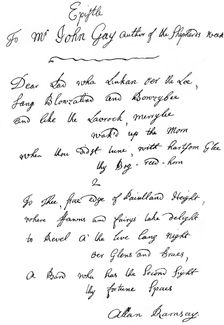 Epistle
To Mr John Gay Author of the Shepherds Week
Dear Lad wha linkan o'er the Lee,
Sang Blowzalind and Bowzybee
and like the Laverock merrylie
wak'd up the Morn
when thou didst tune, with heartsom Glee
thy Bog-reed-horn
2
To Thee, frae edge of Dwialland Height,
where fawns and fairys take delight
to Revel a' the live lang night
o'er Glens and Braes,
a Bard wha has the Second Sight
thy fortune Spaes
Allan Ramsay